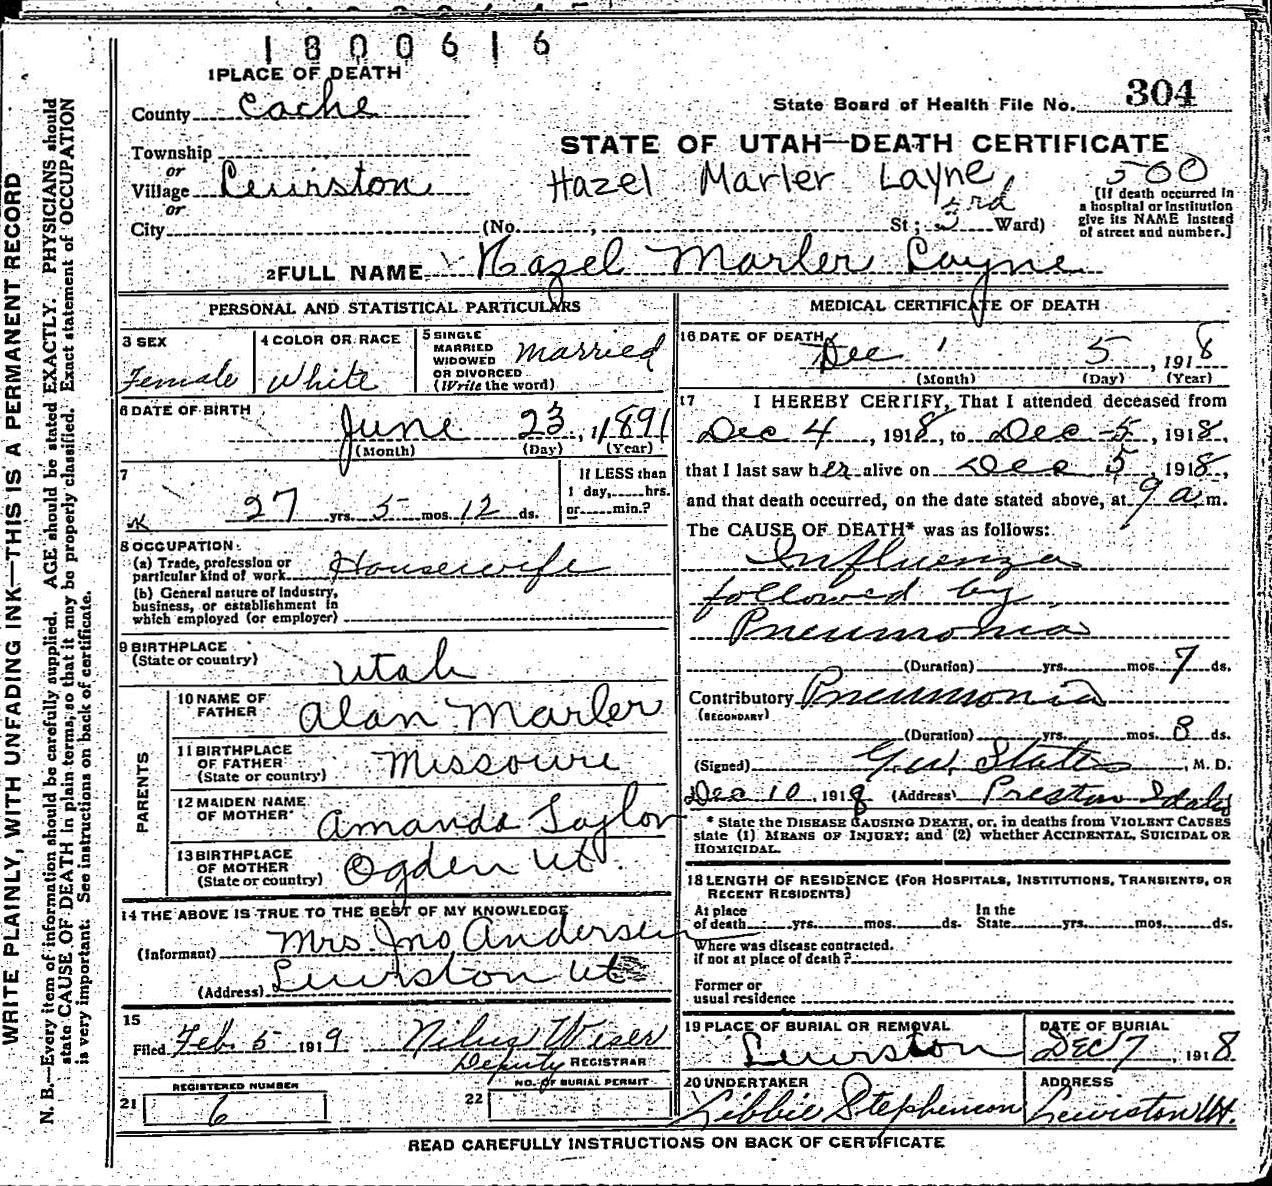 1800616
1 PLACE OF DEATH
County Cache
State Board of Health File No. 304
Township
or
Village Lewiston
or
City
STATE OF UTAH—DEATH CERTIFICATE
Hazel Marler Layne
500
(No. , St; 3rd Ward)
[If death occurred in
a hospital or institution
give its NAME instead
of street and number.]
2 FULL NAME Hazel Marler Layne
PERSONAL AND STATISTICAL PARTICULARS
3 SEX
Female
4 COLOR OR RACE
White
5 SINGLE
MARRIED
WIDOWED
OR DIVORCED
(Write the word)
Married
6 DATE OF BIRTH
June 23, 1891
(Month) (Day) (Year)
7
27 yrs. 5 mos. 12 ds.
If LESS than
1 day, hrs.
or min.?
8 OCCUPATION
(a) Trade, profession or
particular kind of work Housewife
(b) General nature of Industry,
business, or establishment in
which employed (or employer)
9 BIRTHPLACE
(State or country)
Utah
PARENTS
10 NAME OF
FATHER
Alan Marler
11 BIRTHPLACE
OF FATHER
(State or country)
Missouri
12 MAIDEN NAME
OF MOTHER
Amanda Taylor
13 BIRTHPLACE
OF MOTHER
(State or country)
Ogden Ut.
14 THE ABOVE IS TRUE TO THE BEST OF MY KNOWLEDGE
(Informant) Mrs. Jno Andersen
(Address) Lewiston Ut
15
Filed Feb. 5 1919 Nilus Wiser
Deputy REGISTRAR
REGISTERED NUMBER
21 6
NO. OF BURIAL PERMIT
22
MEDICAL CERTIFICATE OF DEATH
16 DATE OF DEATH
Dec 5, 1918
(Month) (Day) (Year)
17 I HEREBY CERTIFY, That I attended deceased from
Dec 4, 1918, to Dec 5, 1918,
that I last saw her alive on Dec 5, 1918,
and that death occurred, on the date stated above, at 9 a m.
The CAUSE OF DEATH* was as follows:
Influenza
followed by
Pneumonia
(Duration) yrs. mos. 7 ds.
Contributory Pneumonia
(SECONDARY)
(Duration) yrs. mos. 8 ds.
(Signed) G.W. States, M. D.
Dec 10, 1918 (Address) Preston Idaho
* State the DISEASE CAUSING DEATH, or, in deaths from VIOLENT CAUSES
state (1) MEANS OF INJURY; and (2) whether ACCIDENTAL, SUICIDAL OR
HOMICIDAL.
18 LENGTH OF RESIDENCE (FOR HOSPITALS, INSTITUTIONS, TRANSIENTS, OR
RECENT RESIDENTS)
At place
of death yrs. mos. ds.
In the
State yrs. mos. ds.
Where was disease contracted.
if not at place of death?
Former or
usual residence
19 PLACE OF BURIAL OR REMOVAL
Lewiston
DATE OF BURIAL
DEC 7, 1918
20 UNDERTAKER
Libbie Stephenson
ADDRESS
Lewiston Ut.
READ CAREFULLY INSTRUCTIONS ON BACK OF CERTIFICATE
WRITE PLAINLY, WITH UNFADING INK—THIS IS A PERMANENT RECORD
N. B.—Every item of information should be carefully supplied. AGE should be stated EXACTLY. PHYSICIANS should
state CAUSE OF DEATH in plain terms, so that it may be properly classified. Exact statement of OCCUPATION
is very important. See instructions on back of certificate.